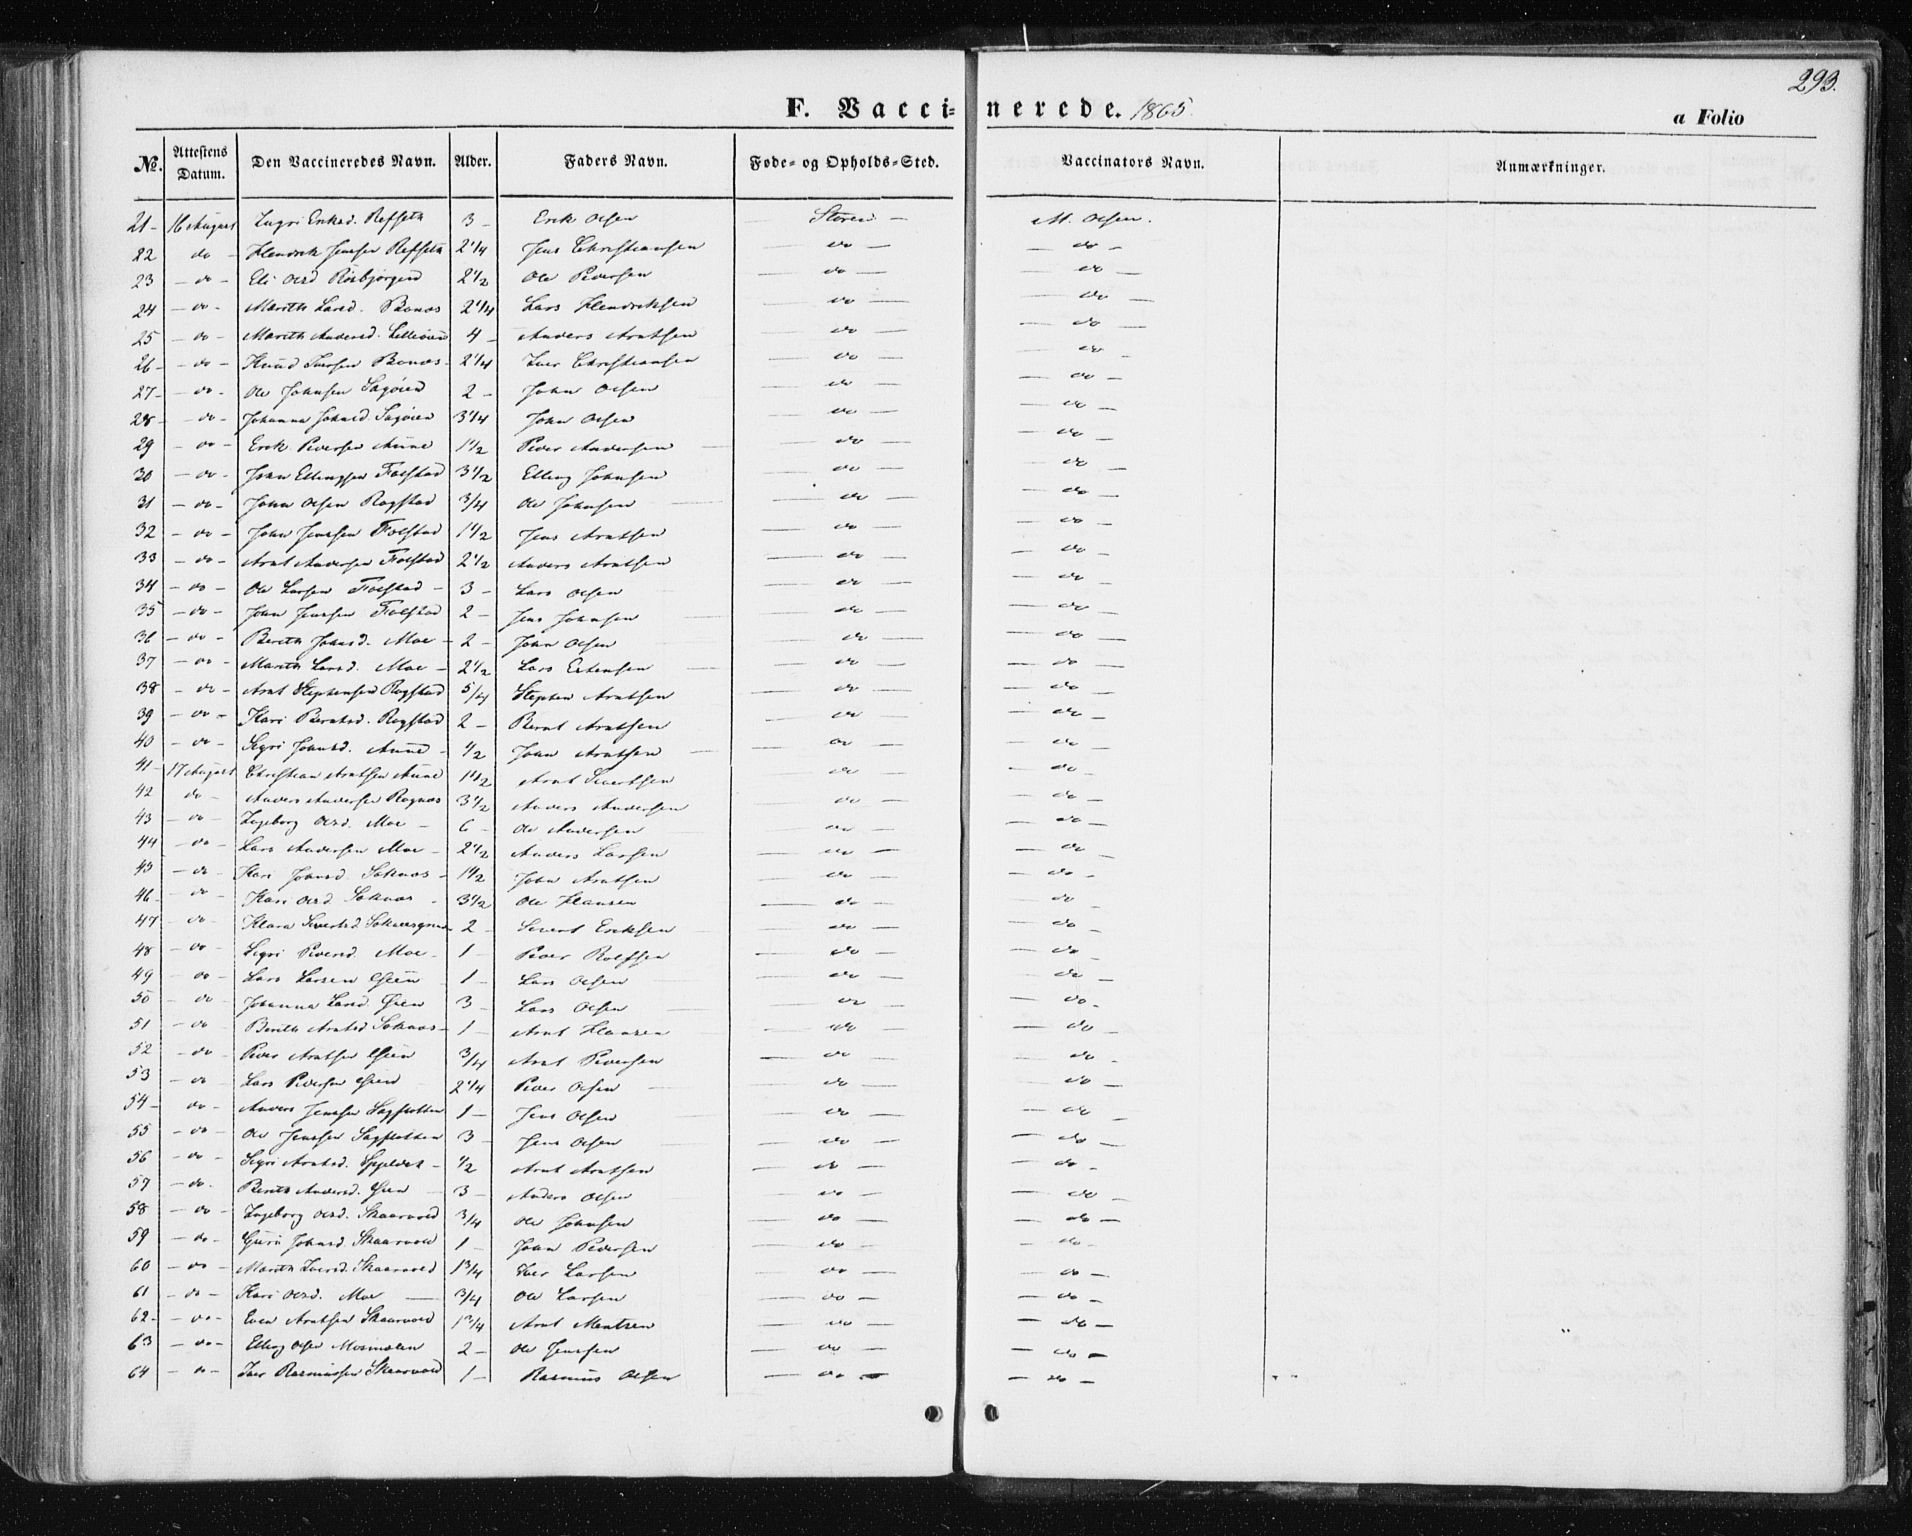 293.
F. Vaccinerede. 1865.
a Folio
№. Attestens Datum. Den Vaccineredes Navn. Alder. Faders Navn. Føde- og Opholds-Sted. Vaccinators Navn. Anmærkninger.
21 - 16 August Ingri Eriksd. Refseth 3 - Erik Olsen — Støren — M. Olsen.
22 do - Hendrik Jensen Refseth 2 1/4 Jens Christiansen — do — — do —
23 - do - Eli Olsd 2 1/2 Ole Pedersen — do — — do —
24 - do - Marith Larsd. Bonæs 2 1/4 Lars Hendriksen — do — — do —
25 - do - Marith Andersd. 4 - Anders Arntsen — do — — do —
26 - - do - Knud Iversen Bonæs - 2 1/4 Iver Christiansen — do — — do —
27 - - do - Ole Johnsen Sagøien 2 - John Olsen — do — — do —
28 - do - Johanna Johnsd Sagøien 3 1/4 John Olsen — do — — do —
29 - do - Erik Pedersen Aune 1 1/2 Peder Andersen — do — — do —
30 - do - John Ellingsen Folstad 3 1/2 Elling Johnsen — do — — do —
31 - do - John Olsen Rogstad 3/4 Ole Johnsen — do — — do —
32 - do - John Jensen Folstad 1 1/2 Jens Arntsen — do — — do —
33 - do - Arnt Andersen Folstad 2 1/2 Anders Arntsen — do — — do —
34 - do - Ole Larsen Folstad - 3 - Lars Olsen — do — — do —
35 - do - John Jensen Folstad 2 - Jens Johnsen — do — — do —
36 - do - Berith Johnsd. Moe - 2 - John Olsen — do — — do —
37 - do - Marith Larsd. Moe - 2 1/2 Lars Estensen — do — — do —
38 - do - Arnt Stephensen Rogstad 5/4 Stephen Arntsen — do — — do —
39 - do - Kari Berntsd. Rogstad 2 - Bernt Arntsen — do — — do —
40 - do - Sigri Johnsd. Aune - 1/2 John Arntsen — do — — do —
41 - 17 August Christian Arntsen Aune 1 1/2 Arnt Sivertsen — do — — do —
42 do - Anders Andersen Rognæs 3 1/2 Anders Andersen — do — — do —
43 - do - Ingeborg Olsd. Moe - 6 - Ole Andersen — do — — do —
44 - do - Lars Andersen Moe - 2 1/2 Anders Larsen — do — — do —
45 - do - Kari Johnsd. Soknæs - 1 1/2 John Arntsen — do — — do —
46 - - do - Kari Olsd Soknæs - 3 1/2 Ole Hansen — do — — do —
47 - do - Klara Sivertsd 2 - Sivert Eriksen — do — — do —
48 - do - Sigri Pedersd. Moe - 1 - Peder Rolfsen — do — — do —
49 - do - Lars Larsen Øien 1 - Lars Olsen — do — — do —
50 - do - Johanna Larsd Øien 3 - Lars Olsen — do — — do -
51 - do - Berith Arntsd Soknæs - 1 - Arnt Hansen — do — — do —
52 - do - Peder Arntsen Øien 3/4 Arnt Pedersen — do — — do -
53 - do - Lars Pedersen Øien 2 1/4 Peder Olsen — do — — do —
54 - - do - Anders Jensen 1 - Jens Olsen — do — — do —
55 - do - Ole Jensen 3 - Jens Olsen — do — — do —
56 - do - Sigri Arntsd. 1/2 Arnt Arntsen — do — — do -
57 - do - Berith Andersd. Øien - 3 - Anders Olsen — do — — do —
58 - do - Ingeborg Olsd. Skaarvold 3/4 Ole Johnsen — do — — do —
59 - do - Guri Johnsd. Skaarvold 1 - John Pedersen — do — — do -
60 - do - Marith Iversd. Skaarvold 1 3/4 Iver Larsen — do — — do —
61 - do - Kari Olsd. Moe — 3/4 Ole Larsen — do — — do —
62 - - do - Even Arntsen Skaarvold 1 3/4 Arnt Mentzen — do — — do —
63 - do - Elling Olsen 2 - Ole Jensen — do — — do —
64 - do - Iver Rasmussen Skaarvold 1 - Rasmus Olsen — do — — do —